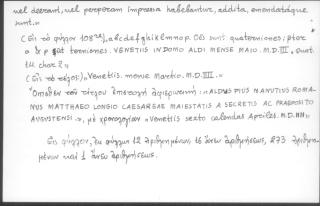 vel deerant, vel perperam impressa habebantur, addita, emendataque
sunt.
(Εἰς τὸ φύλλον 108ᵃ), abcdefghiklmnop. Oēs sunt quaterniones; ptoc
o & p qūt terniones. VENETIIS IN DOMO ALDI. MENSE MAIO. M.D.III,
(Εἰς τὸ τέλος:) «Venetiis. mense Martio. M.D.IIII.»
Ὄπισθεν τοῦ στίχου ἀφιέρωσις: «ALDUS PIUS MANUTIUS ROMA-
NUS MATTHAEO LONGIO CAESAREAE MAIESTATIS A SECRETIS AC PRAEPOSITO
AUGUSTENSI.», μὲ χρονολογίαν «Venetiis sexto calendas Apreiles. M.D.IIII»
Εἰς φύλλον, ἐκ φύλλων 12 ἀριθμημένων, 16 ἄνευ ἀριθμήσεως, 273 ἀριθμη-
μένων καὶ 1 ἄνευ ἀριθμήσεως.